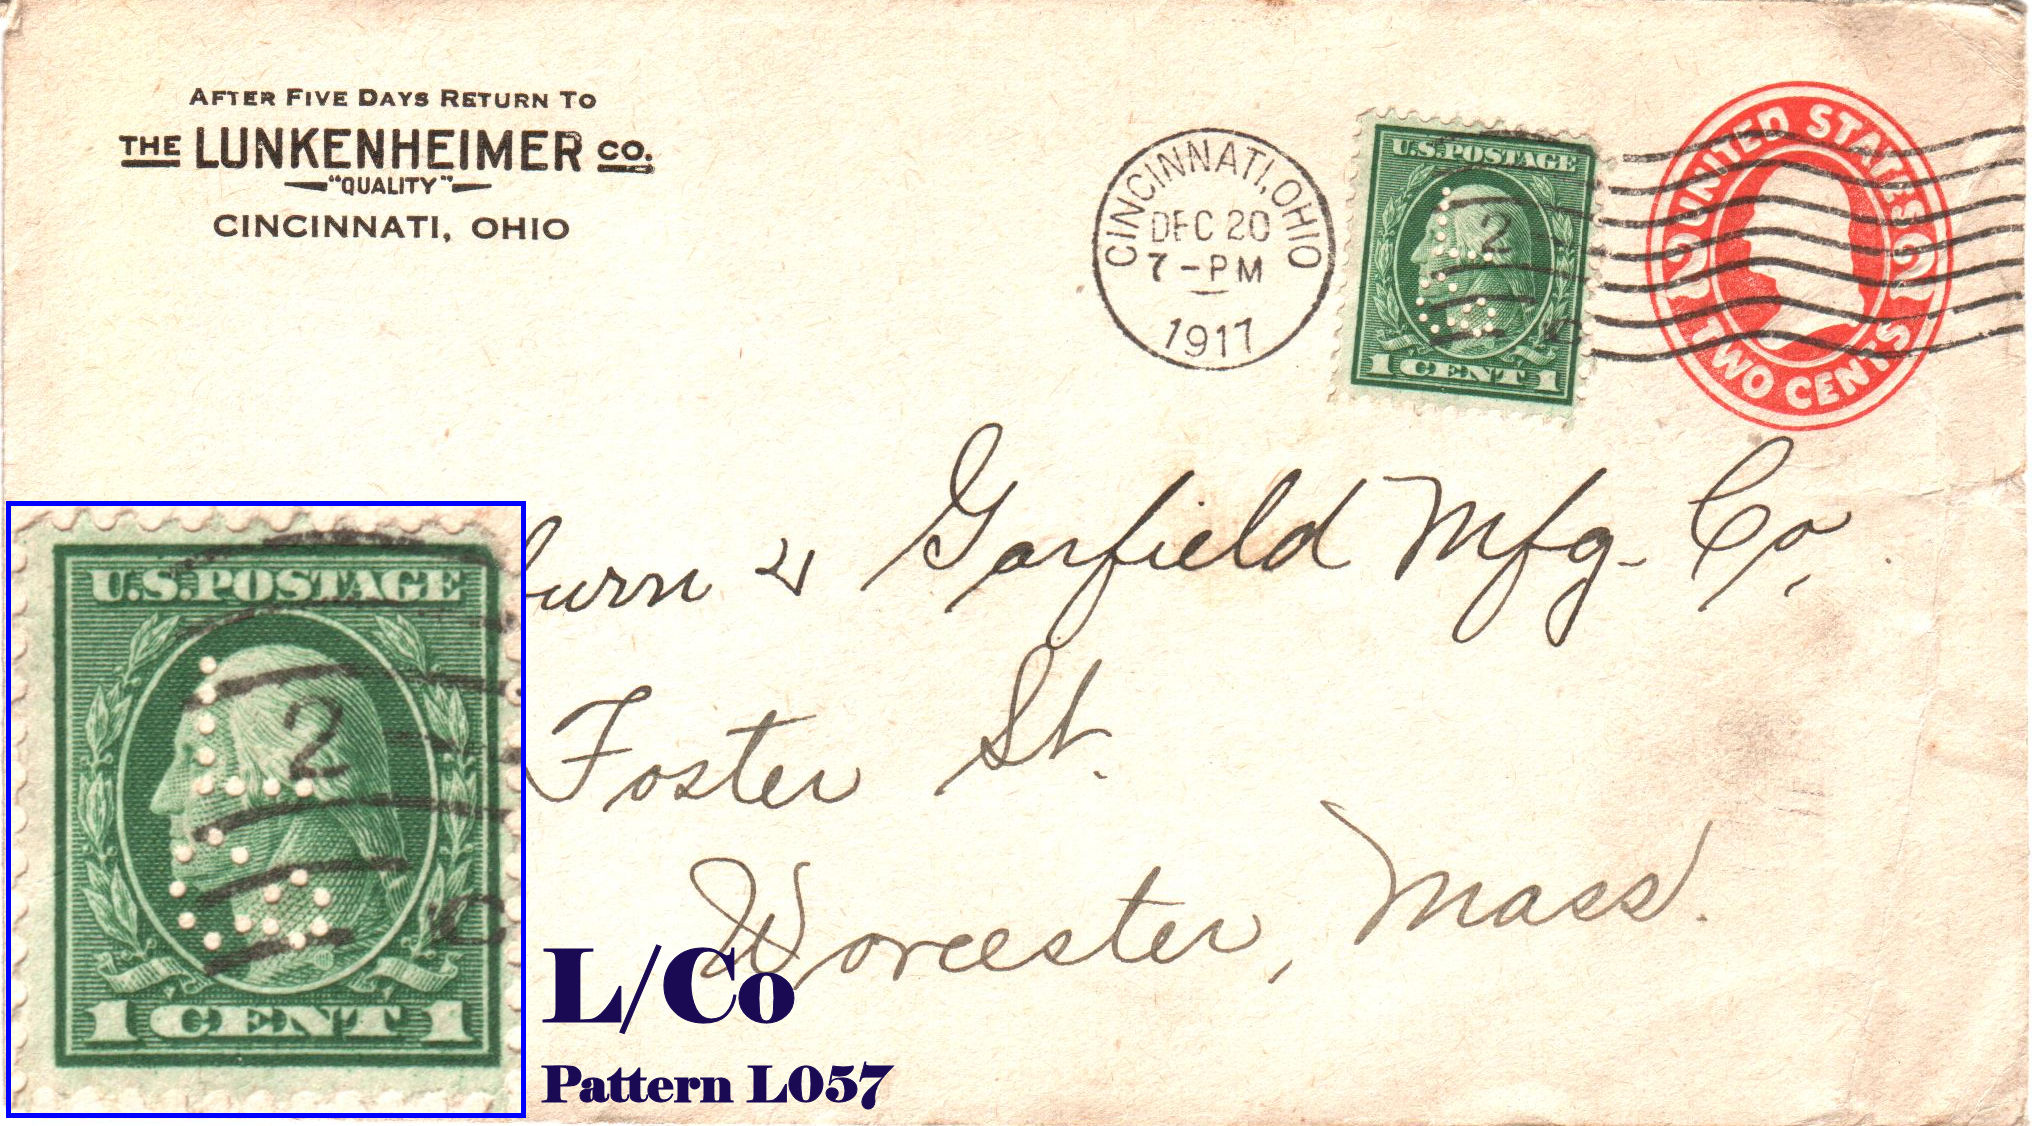 AFTER FIVE DAYS RETURN TO
THE LUNKENHEIMER CO.
"QUALITY"
CINCINNATI, OHIO
CINCINNATI, OHIO
DEC 20
7-PM
1917
U.S. POSTAGE
2
1 CENT 1
UNITED STATES
2 2
TWO CENTS
burn & Garfield Mfg. Co,
Foster St.
Worcester, Mass.
U.S. POSTAGE
2
L
Co
C
1 CENT 1
L/Co
Pattern L057